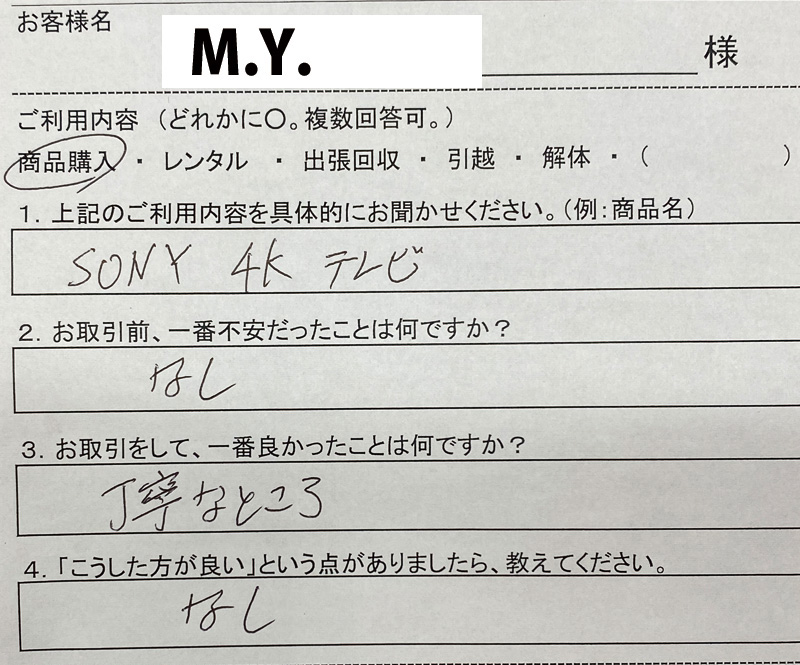 お客様名
M.Y. 様
ご利用内容 (どれかに〇。複数回答可。)
商品購入 ・ レンタル ・ 出張回収 ・ 引越 ・ 解体 ・( )
1. 上記のご利用内容を具体的にお聞かせください。(例:商品名)
SONY 4K テレビ
2. お取引前、一番不安だったことは何ですか?
なし
3. お取引をして、一番良かったことは何ですか?
丁寧なところ
4. 「こうした方が良い」という点がありましたら、教えてください。
なし